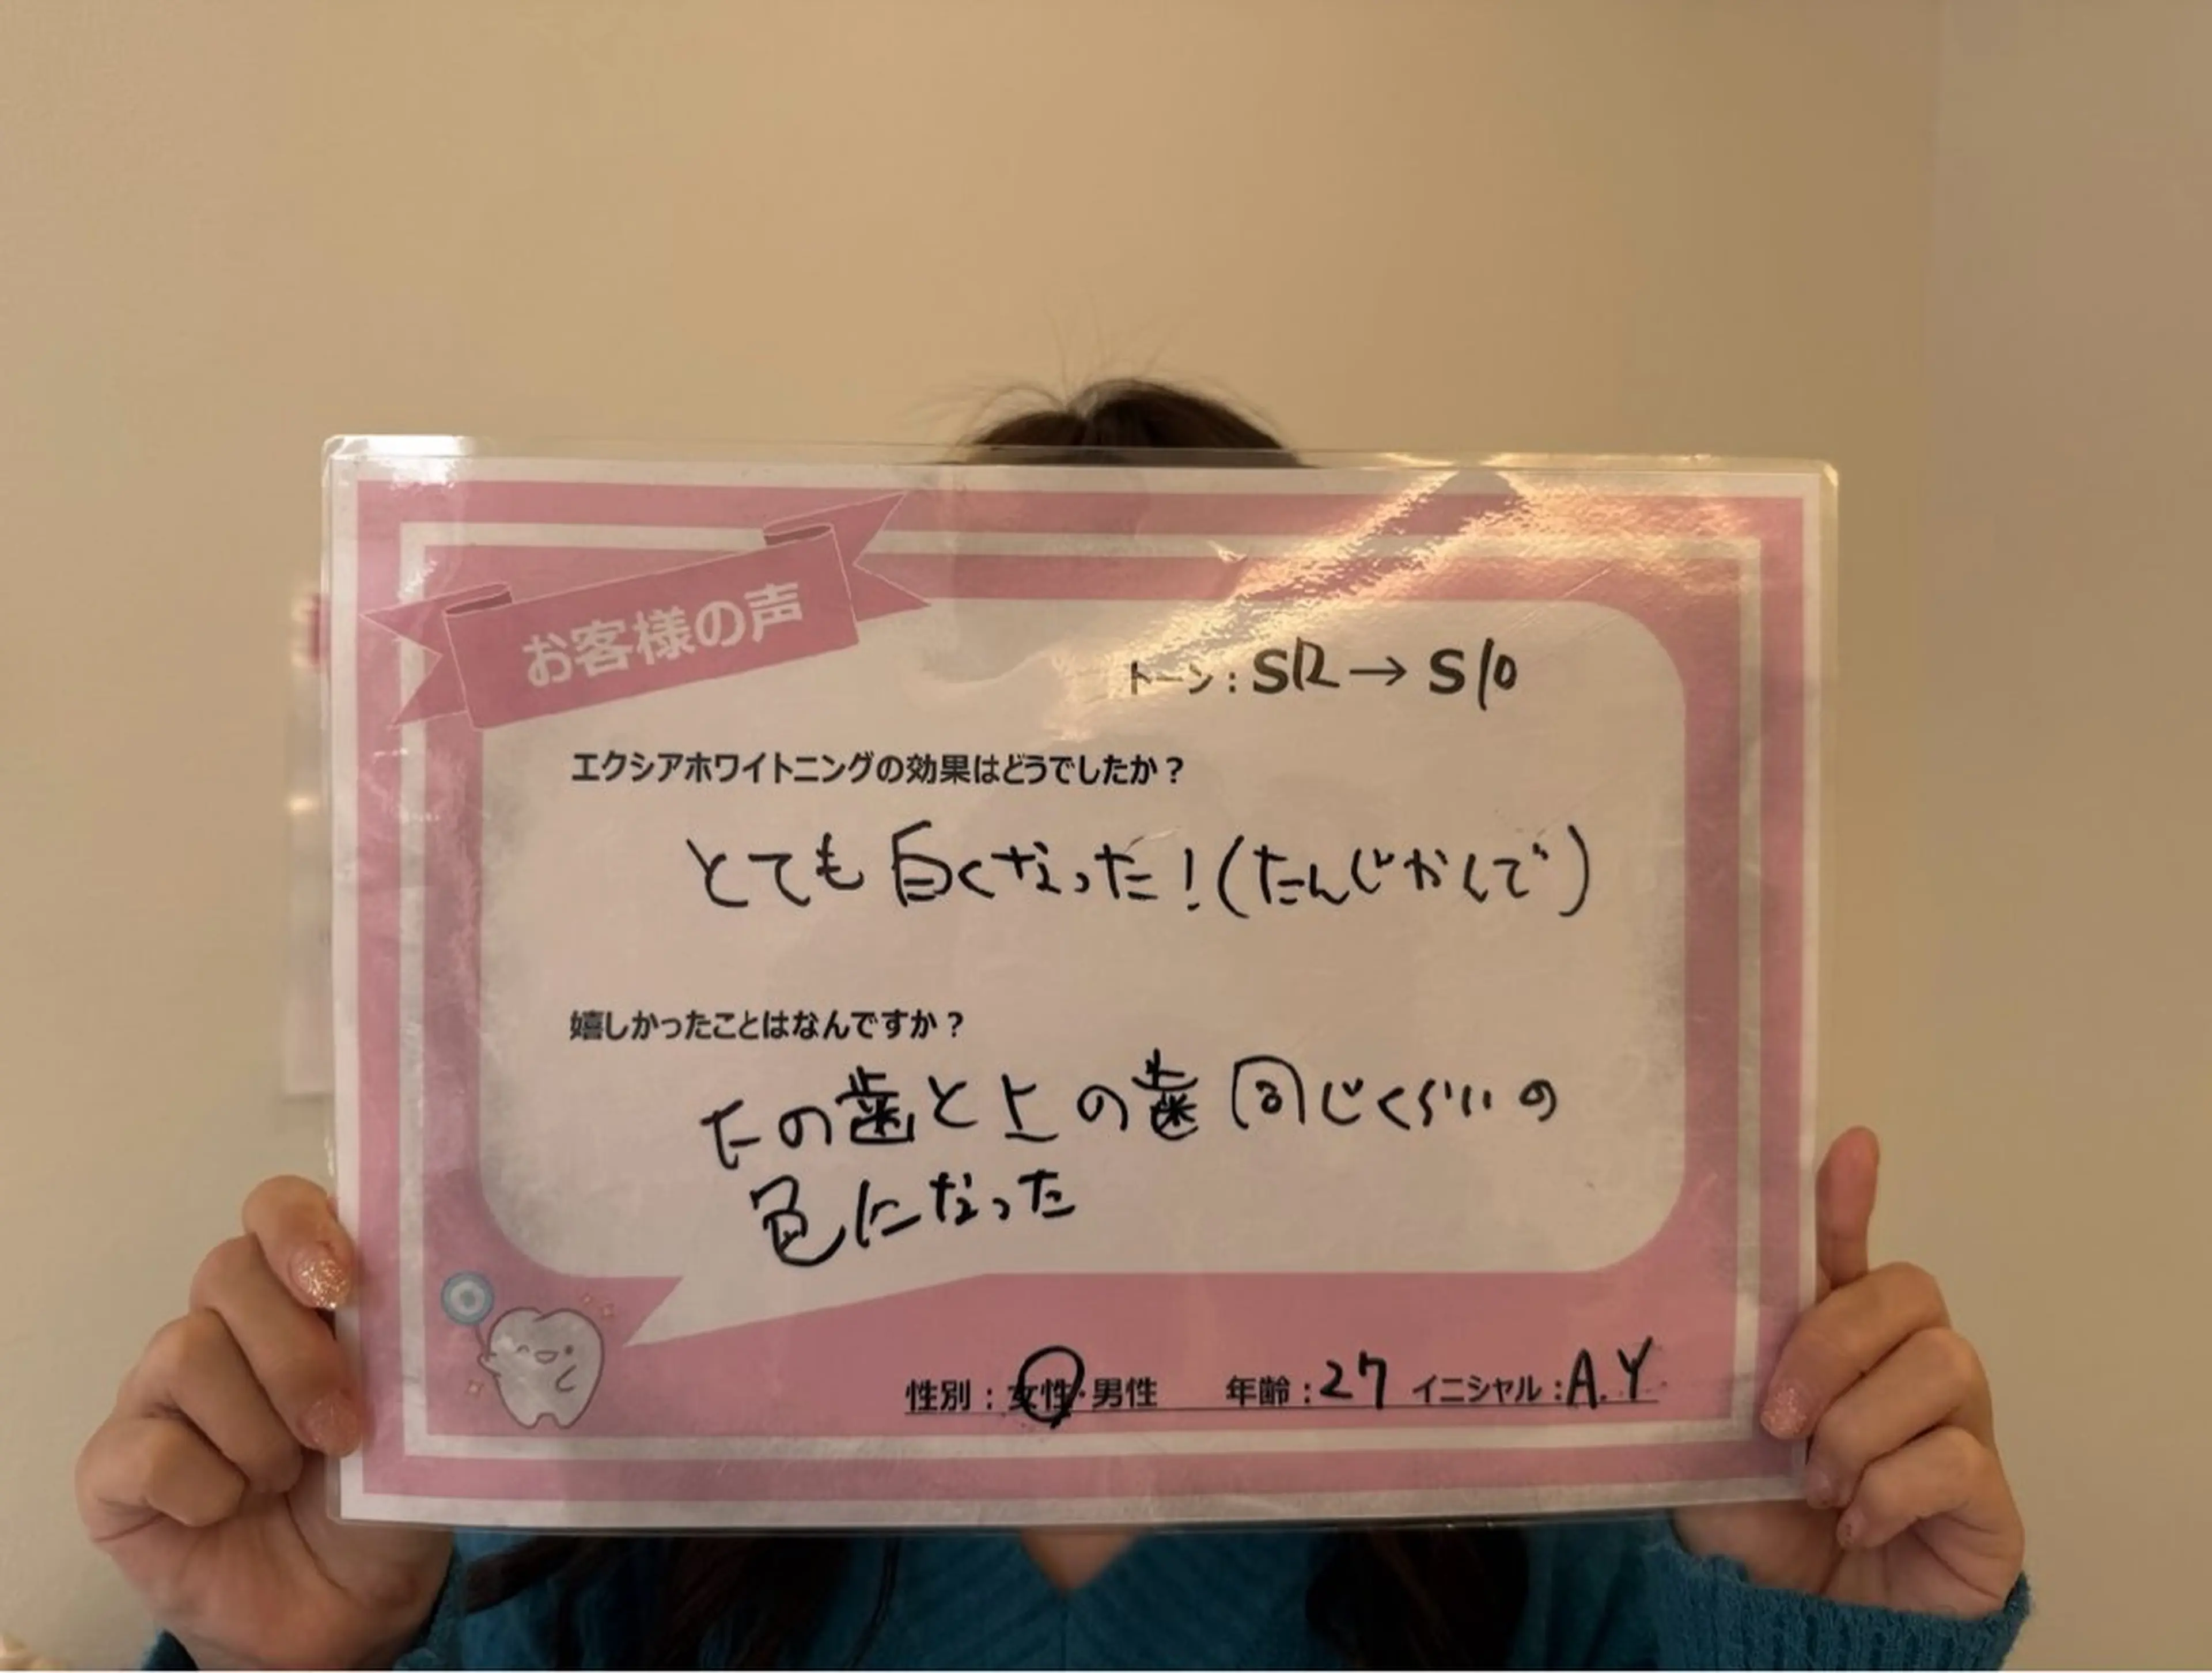 お客様の声
トーン：S12→S10
エクシアホワイトニングの効果はどうでしたか？
とても白くなった！(たんじかんで)
嬉しかったことはなんですか？
下の歯と上の歯同じくらいの
色になった
性別：女性・男性 年齢：27 イニシャル：A.Y